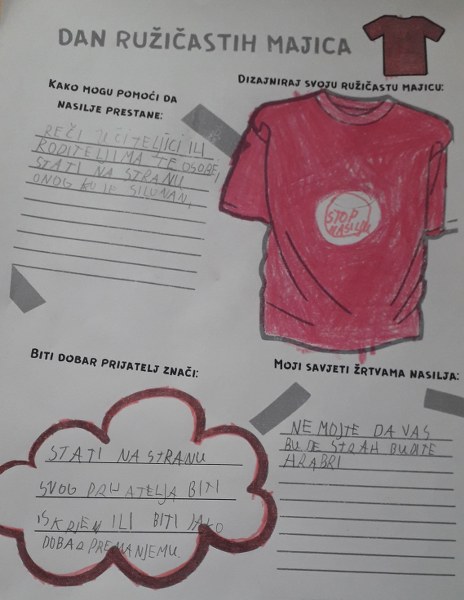 DAN RUŽIČASTIH MAJICA
KAKO MOGU POMOĆI DA
NASILJE PRESTANE:
REĆI UČITELJICI ILI
RODITELJIMA TE OSOBE,
STATI NA STRANU
ONOG KO JE
DIZAJNIRAJ SVOJU RUŽIČASTU MAJICU:
STOP
NASILJU
BITI DOBAR PRIJATELJ ZNAČI:
STATI NA STRANU
SVOG PRIJATELJA BITI
ISKREN ILI BITI JAKO
DOBAR PREMA NJEMU.
MOJI SAVJETI ŽRTVAMA NASILJA:
NEMOJTE DA VAS
BUDE STRAH BUDITE
HRABRI